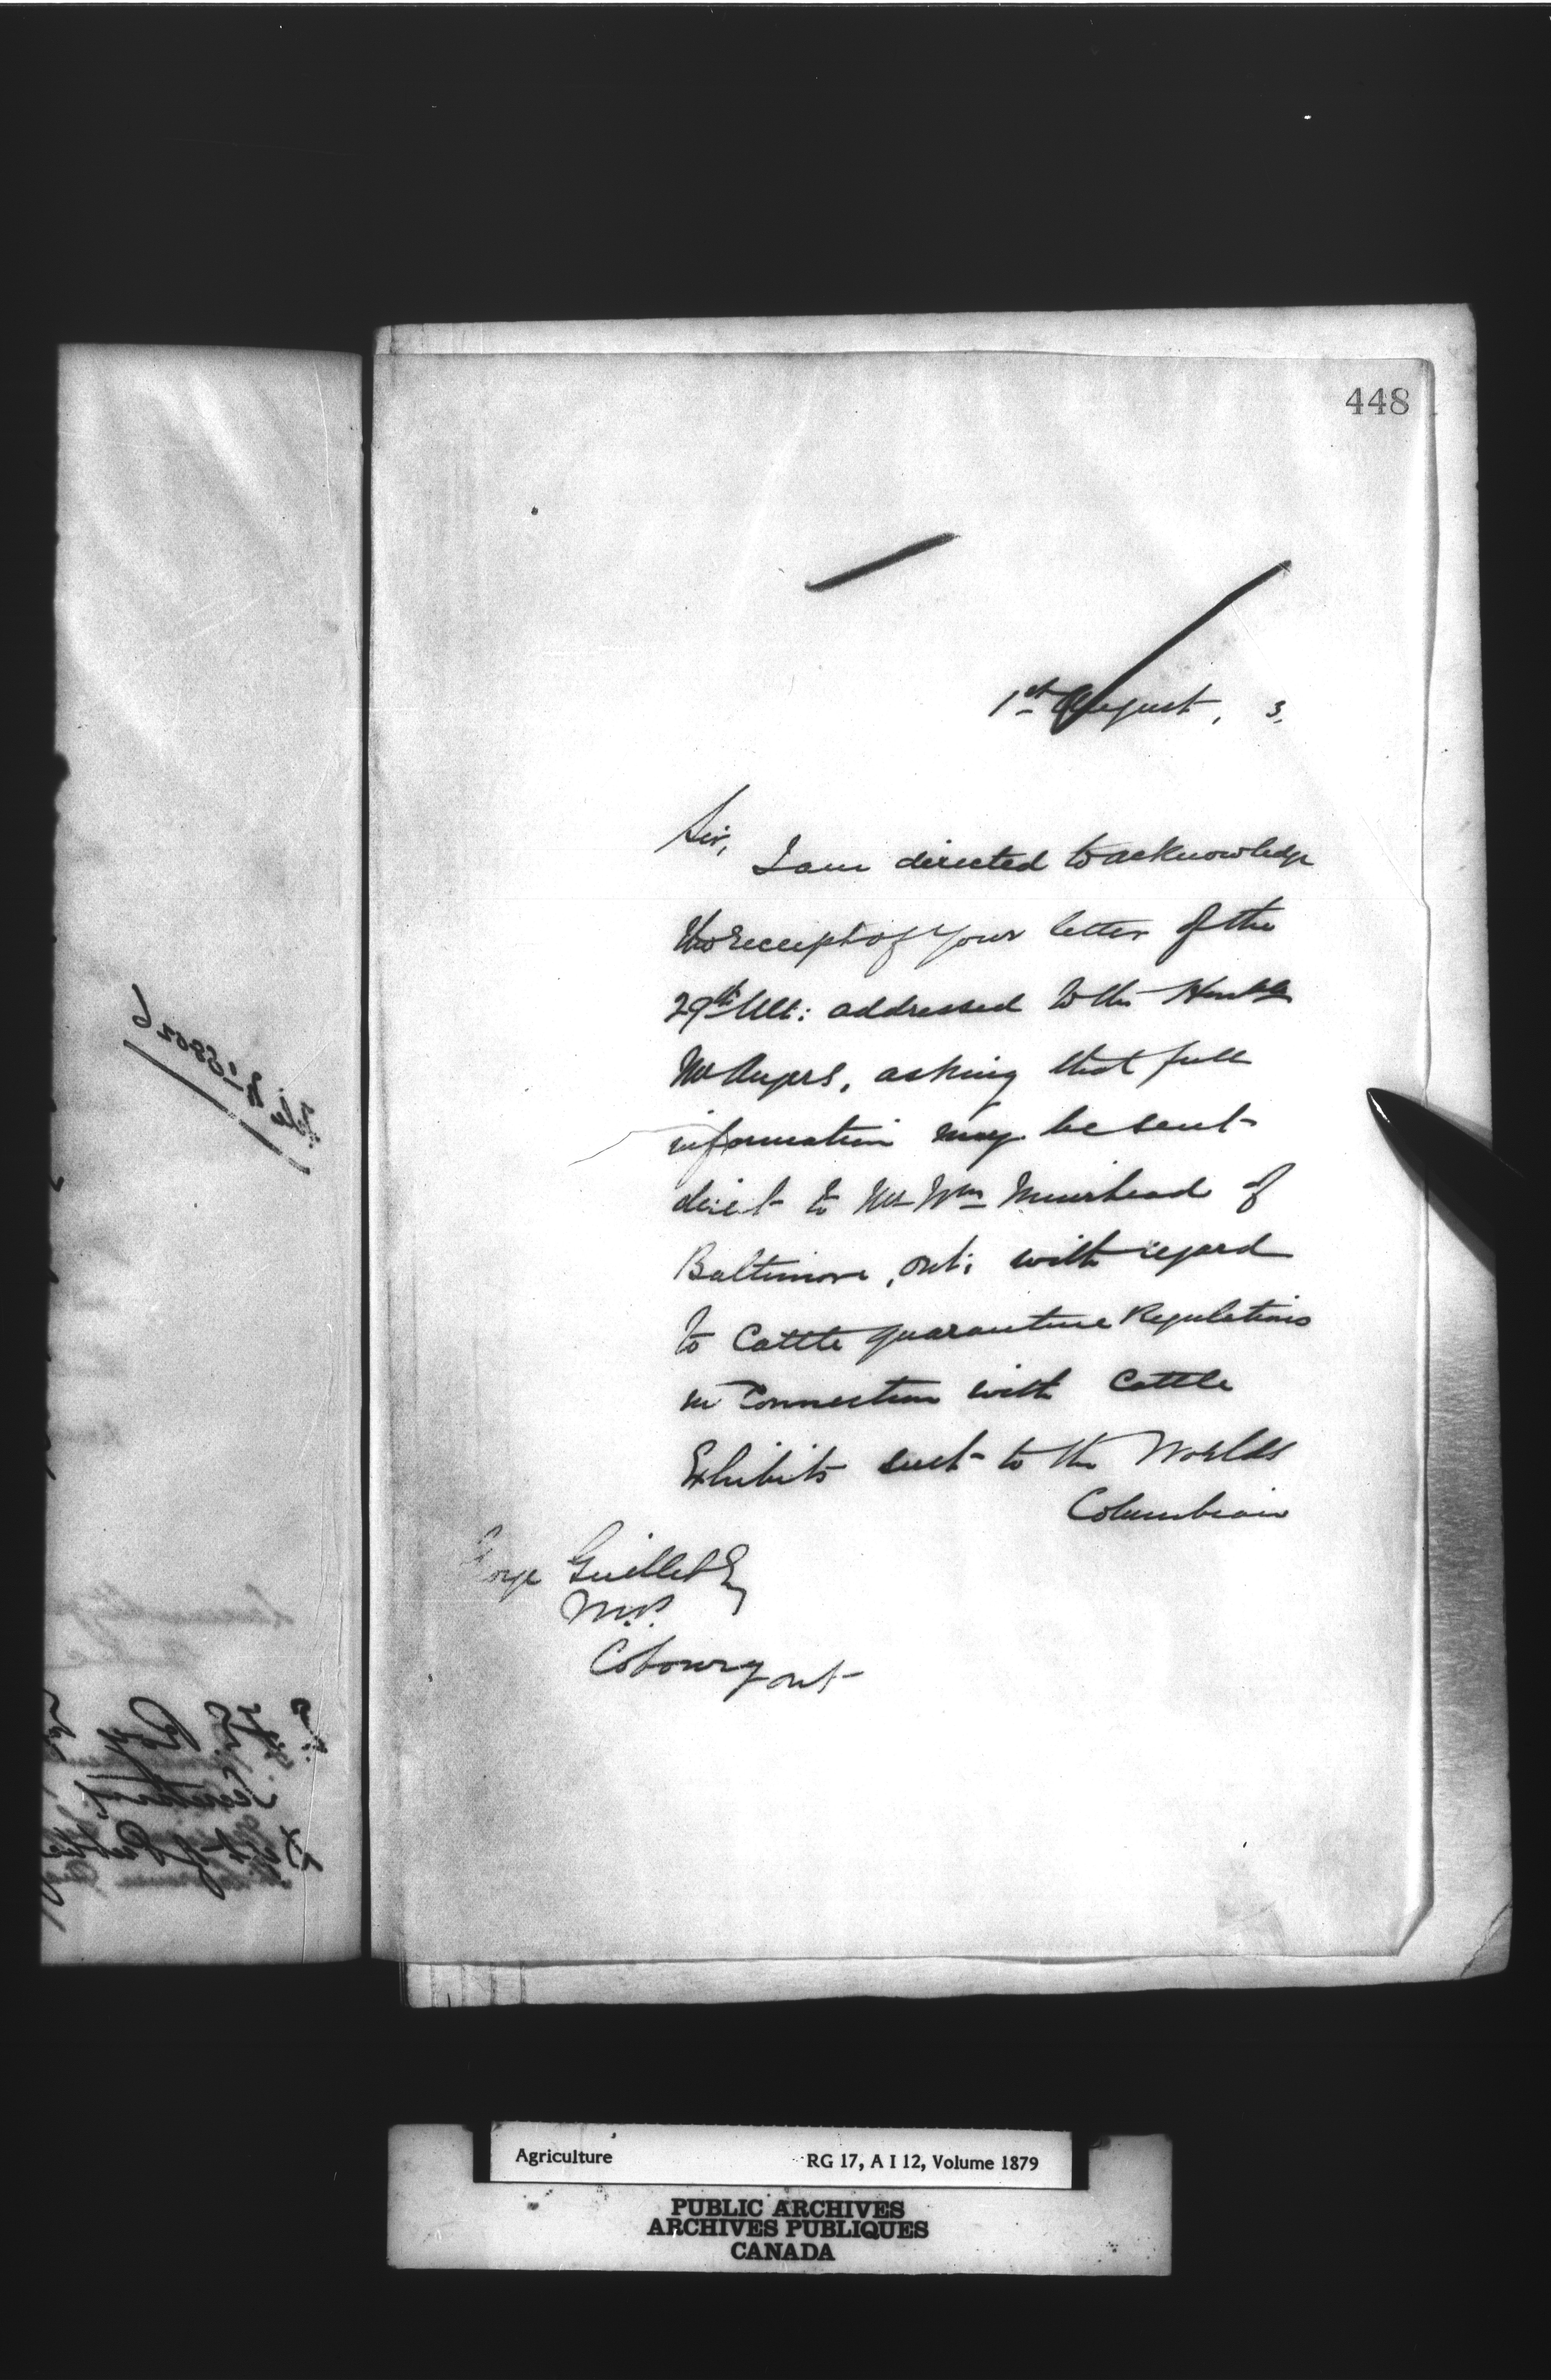 448
1st August, 3.
Sir,
I am directed to acknowledge
the receipt of your letter of the
29th Ult: addressed to the Honble
Mr Angers, asking that full
information may be sent
direct to Mr Wm Muirhead of
Baltimore, Ont; with regard
to Cattle quarantine Regulations
in Connection with Cattle
Exhibits sent to the Worlds
Columbian
George Guillet Esq
M.P.
Cobourg Ont
Agriculture RG 17, A I 12, Volume 1879
PUBLIC ARCHIVES
ARCHIVES PUBLIQUES
CANADA